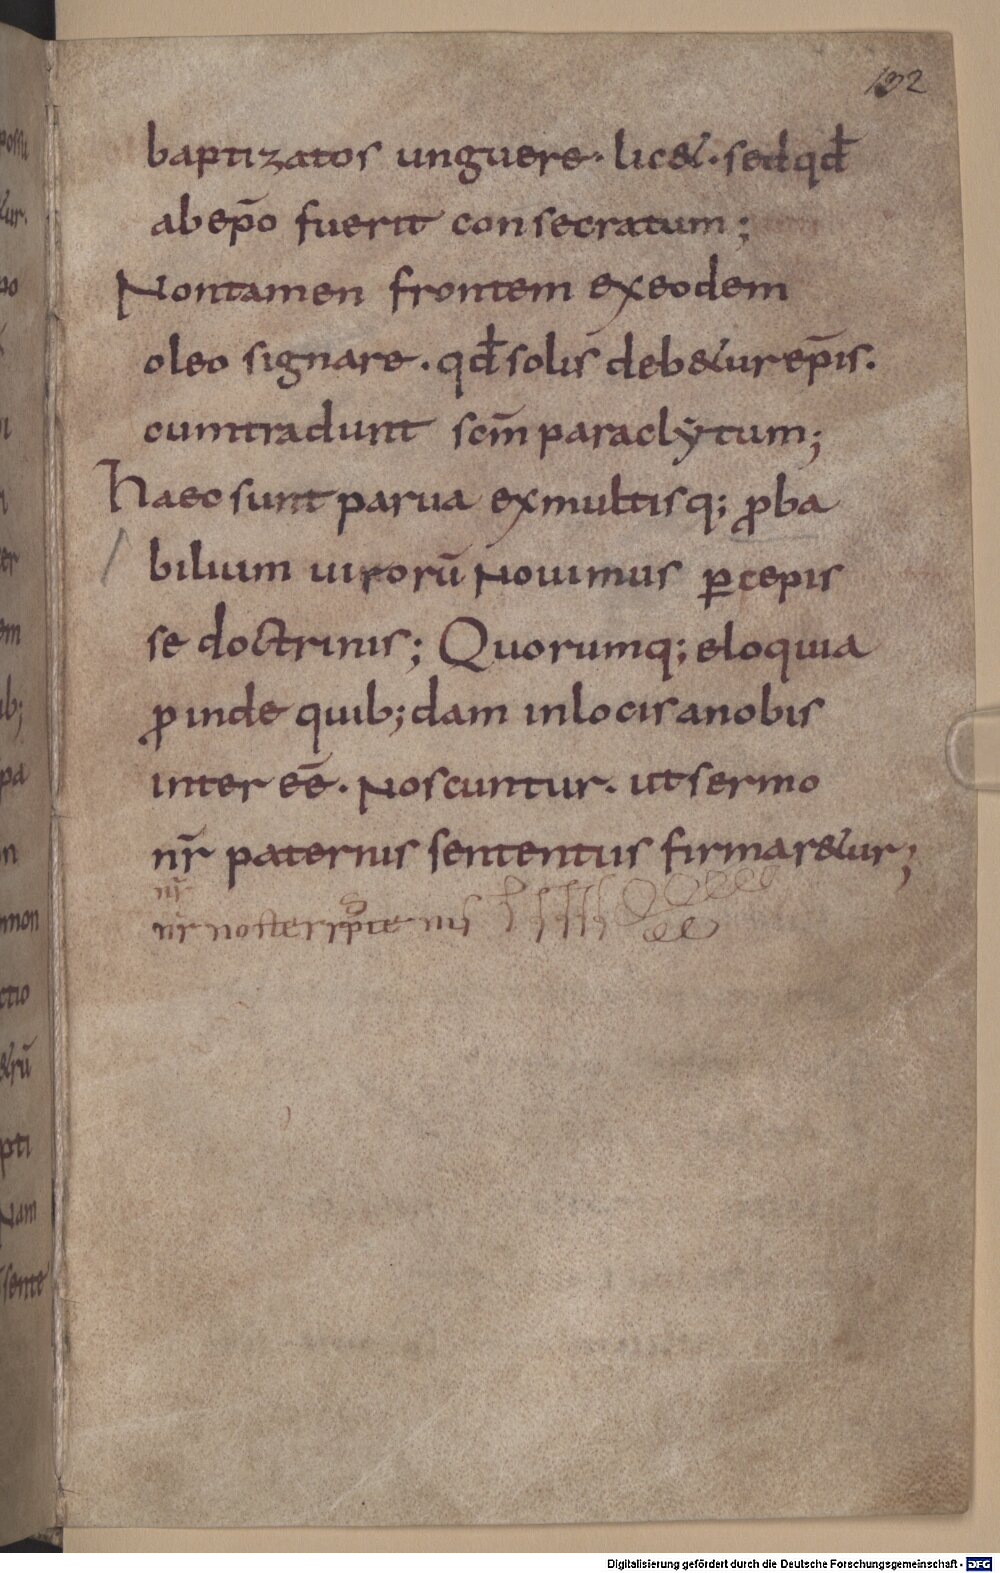 132
baptizatos unguere· lic&· sed qđ
ab ep̄o fuerit consecratum;
Non tamen frontem ex eodem
oleo signare· qđ solis deb&ur ep̄is.
cum tradunt sc̄m paraclẏtum;
Haec sunt parua ex multisq; ꝓba
bilium uirorū Nouimus ꝑcepis
se doctrinis; Quorumq; eloquia
ꝓinde quib;dam in locis a nobis
inter eē· Noscuntur· ut sermo
nr̄ paternis sententiis firmar&ur;
nr̄
nr̄ noster
Digitalisierung gefördert durch die Deutsche Forschungsgemeinschaft - DFG